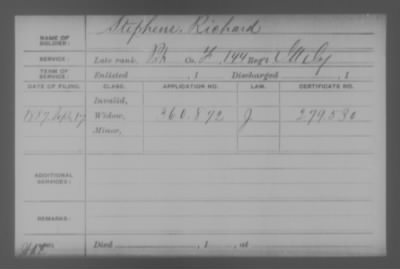 NAME OF SOLDIER: Stephens, Richard
SERVICE: Late rank, Co. F, 144 Reg't
TERM OF SERVICE: Enlisted , 1 Discharged , 1
DATE OF FILING. CLASS. APPLICATION NO. LAW. CERTIFICATE NO.
Invalid,
1887 Sept. 17 Widow, 360.872 J 279.530
Minor,
ADDITIONAL SERVICES:
REMARKS:
Died , 1 , at